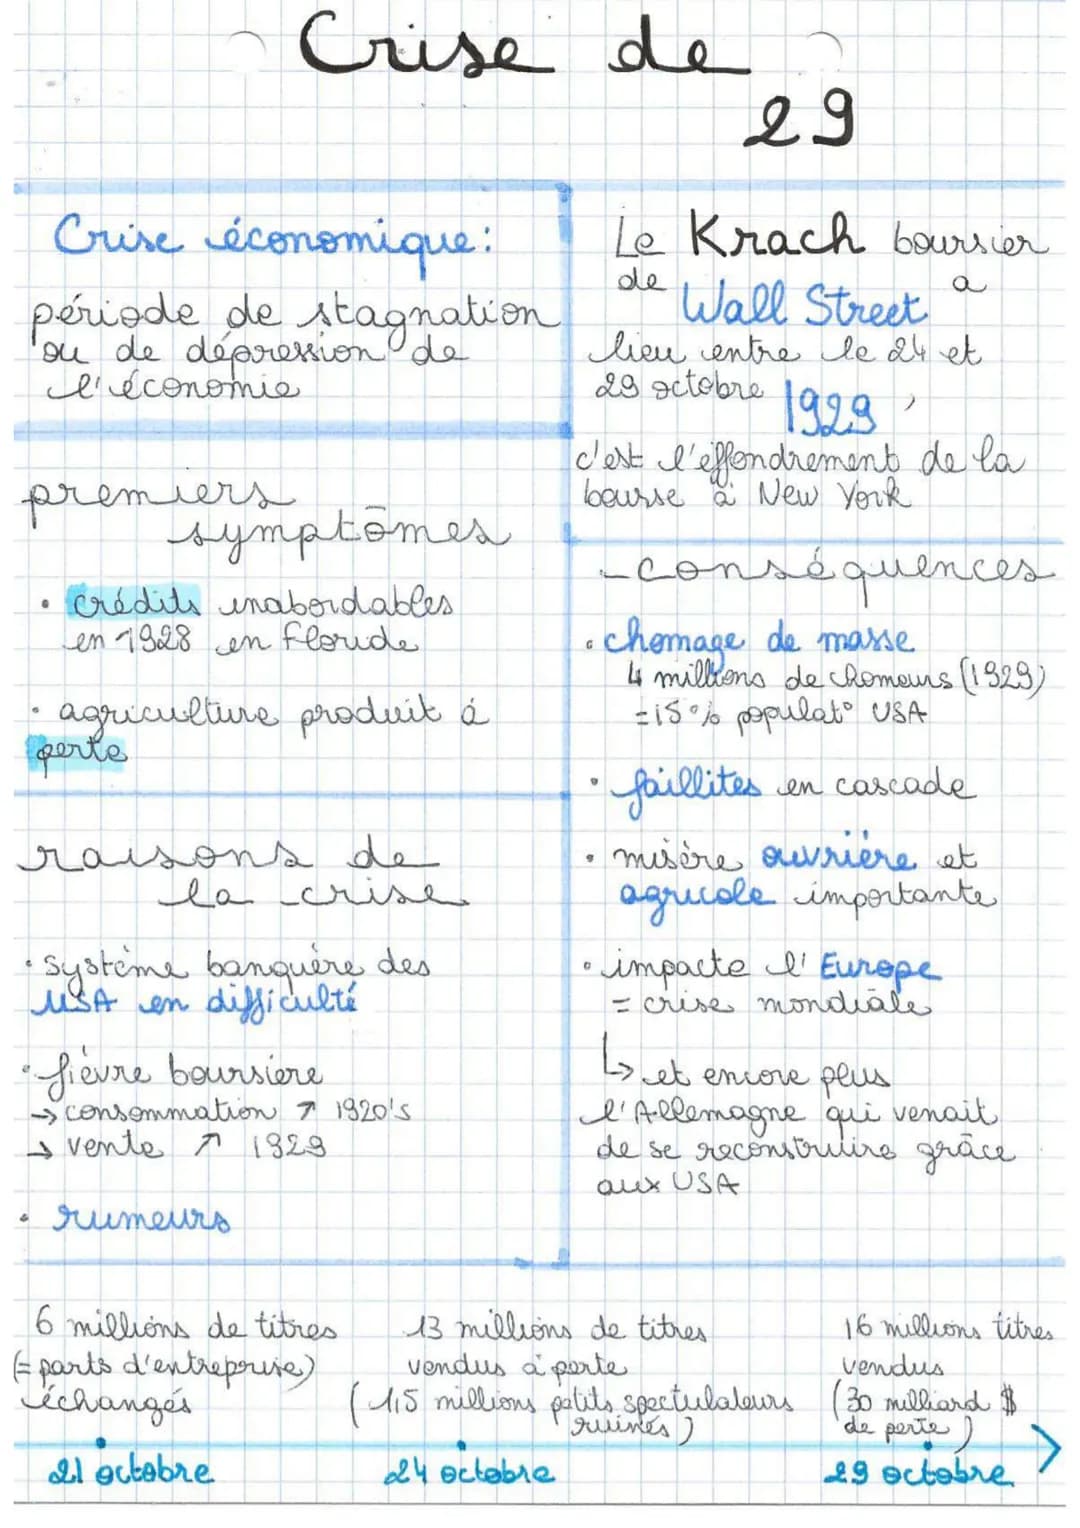 Crise de
29
Crise économique:
période de stagnation
ou de dépression de
l'économie
premiers
symptômes
• crédits inabordables
en 1928 en Floride
• agriculture produit à
perte
raisons de
la crise
• système banquère des
USA en difficulté
• fièvre boursière
→ consommation ↗ 1920's
→ vente ↗ 1929
• rumeurs
Le Krach boursier
de Wall Street a
lieu entre le 24 et
29 octobre 1929,
c'est l'effondrement de la
bourse à New York
conséquences
• chomage de masse
4 millions de chomeurs (1929)
=15% populat° USA
• faillites en cascade
• misère ouvrière et
agricole importante
• impacte l'Europe
= crise mondiale
↳ et encore plus
l'Allemagne qui venait
de se reconstruire grâce
aux USA
6 millions de titres
(= parts d'entreprise)
échangés
21 octobre
13 millions de titres
vendus à perte
(1,5 millions petits spectulateurs
ruinés)
24 octobre
16 millions titres
vendus
(30 milliard $
de perte)
29 octobre